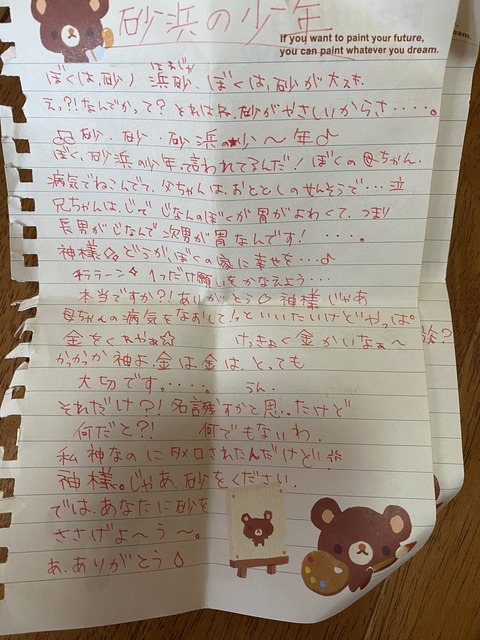 砂浜の少年
If you want to paint your future,
you can paint whatever you dream.
dream.
ぼくは、砂ノ浜砂、ぼくは、砂が大えを
えっ?!なんでかって?それはね、砂がやさしいからさ・・・・・。
砂、砂、砂浜の少〜年♪
ぼく、砂浜の少年。言われてるんだ!ぼくの母ちゃん、
病気でねこんでて、父ちゃんは、おととしのせんそうで・・・泣
兄ちゃんは、じで じなんのぼくが胃がよわくて、つまり
長男がじなんで次男が胃なんです!・・・・。
神様どうか、ぼくの家に幸せを・・・♪
キララーン 1つだけ願いをかなえよう・・・
本当ですか?!ありがとう 神様じゃあ
母ちゃんの病気をなおして!!といいたいけどやっぱ。
金をくれやぁ☆ けっきょく金かいなぁ〜
かっかっか神よ金は金は、とっても
大切です。・・・・。 うん。
それだけ?!名言残すかと思ったけど
何だと?! 何でもないわ。
私神なのにタメ口されたんだけど!!
神様。じゃあ、砂をください。
では、あなたに砂を
ささげよ〜う〜。
あ、ありがとう